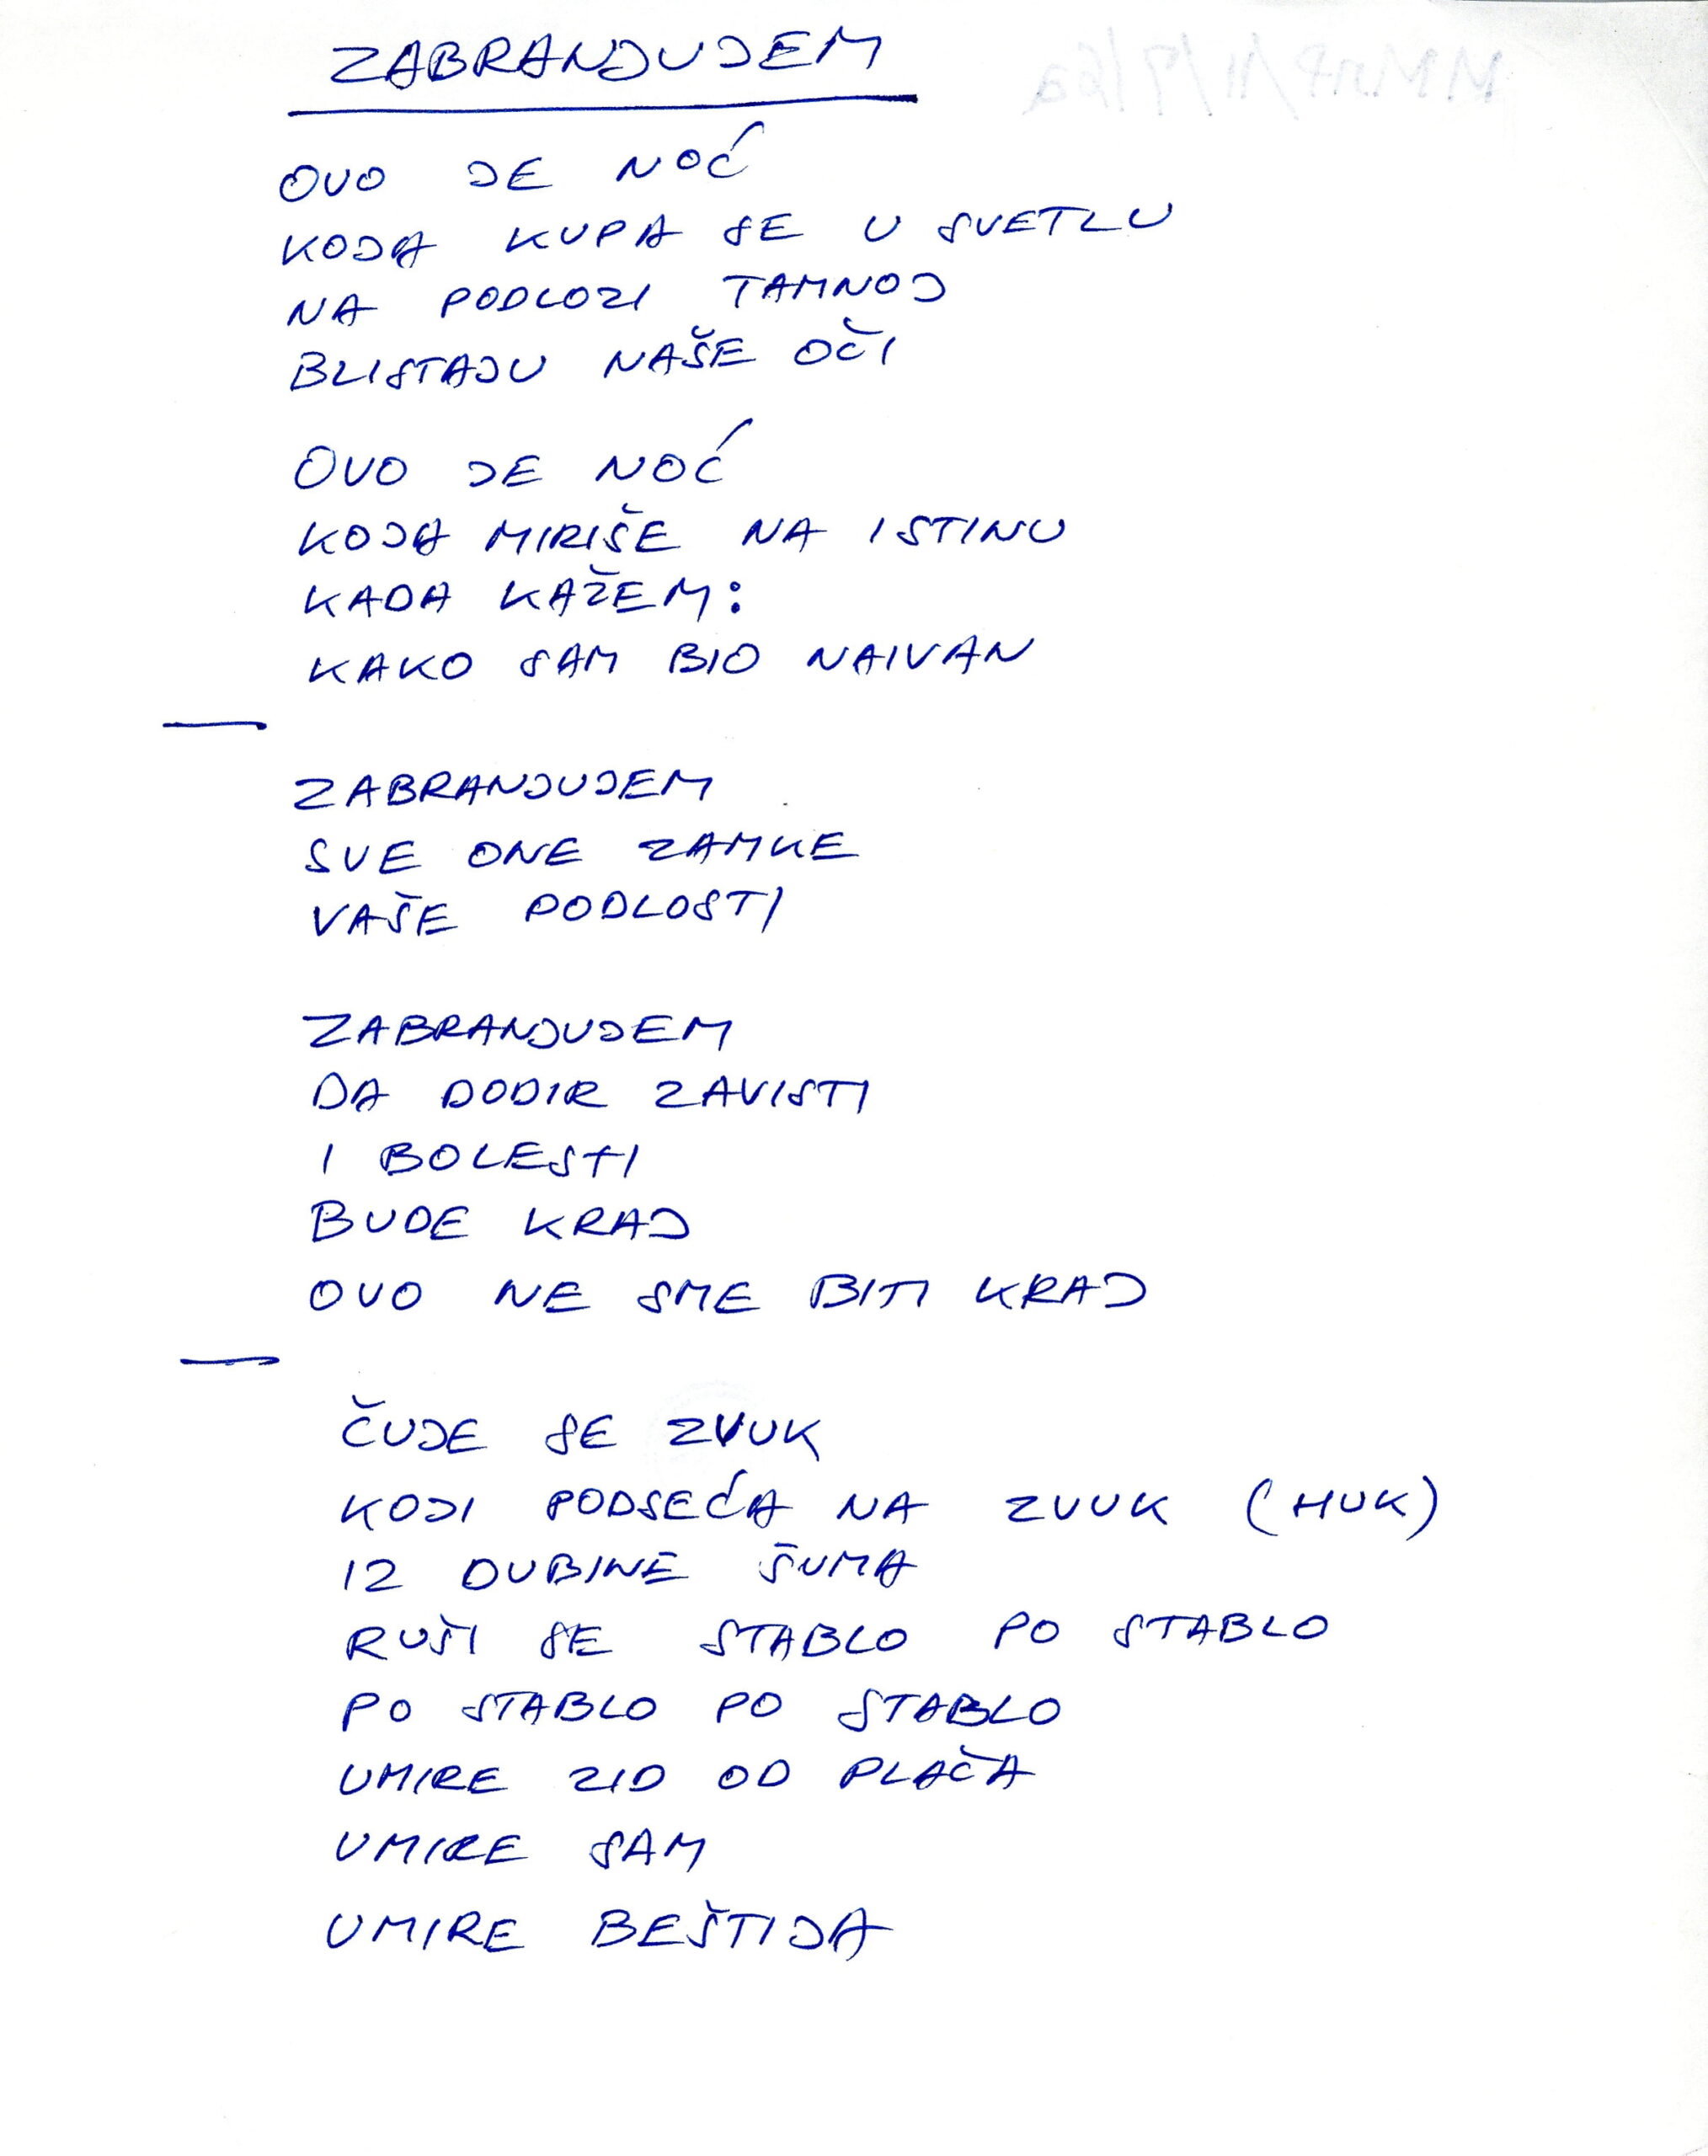 ZABRANJUJEM
OVO JE NOĆ
KOJA KUPA SE U SVETLU
NA PODLOZI TAMNOJ
BLISTAJU NAŠE OČI
OVO JE NOĆ
KOJA MIRIŠE NA ISTINU
KADA KAŽEM:
KAKO SAM BIO NAIVAN
ZABRANJUJEM
SVE ONE ZAMKE
VAŠE PODLOSTI
ZABRANJUJEM
DA DODIR ZAVISTI
I BOLESTI
BUDE KRAJ
OVO NE SME BITI KRAJ
ČUJE SE ZVUK
KOJI PODSEĆA NA ZVUK (HUK)
IZ DUBINE ŠUMA
RUŠI SE STABLO PO STABLO
PO STABLO PO STABLO
UMIRE ZID OD PLAČA
UMIRE SAM
UMIRE BEŠTIJA